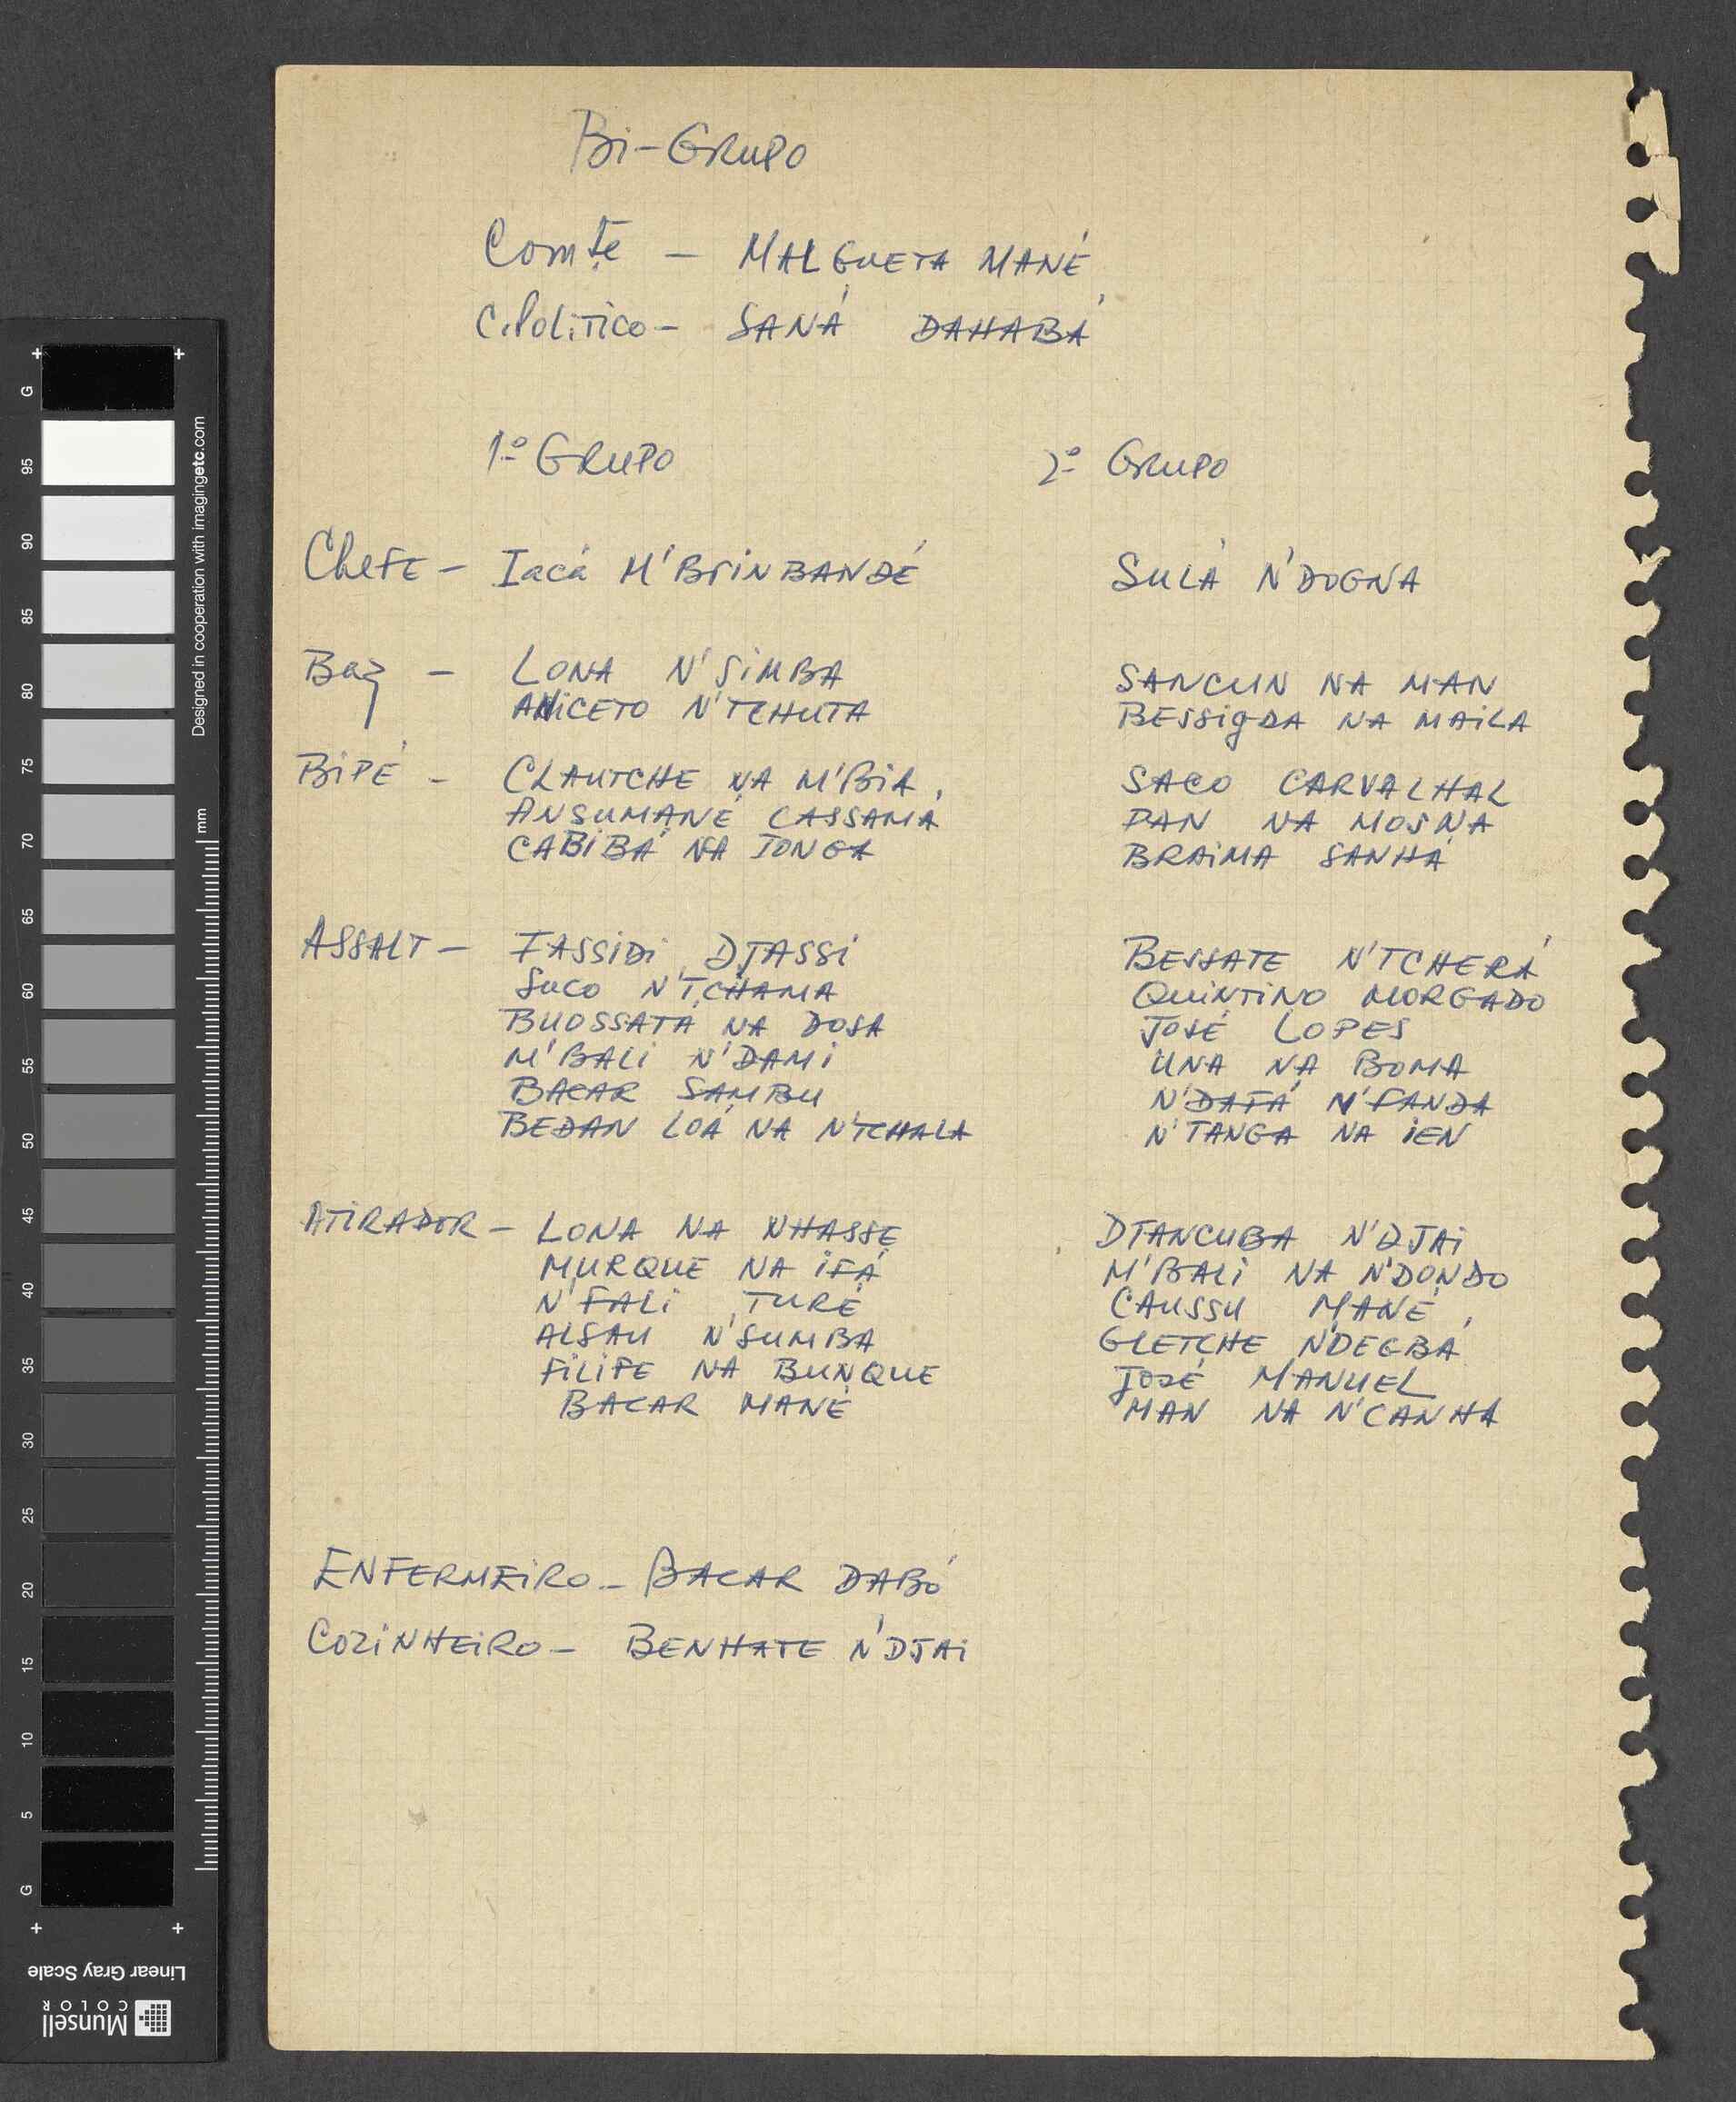 Bi-GRUPO
Comte — MALGUETA MANÉ
C.POLITICO — SANÁ DAHABÁ
1º GRUPO 2º GRUPO
CHEFE — Iacá M'BRINBANDÉ SULÁ N'DOGNA
Baz — LONA N'SIMBA SANCUN NA MAN
ANICETO N'TCHUTA BESSIGDA NA MAILA
BIPÉ — CLAUTCHE NA M'BIA SACO CARVALHAL
ANSUMANE CASSAMÁ DAN NA MOSNA
CABIBÁ NA TONGA BRAIMA SANHÁ
ASSALT — FASSIDI DJASSI BESSATE N'TCHERÁ
SUCO N'TCHAMA QUINTINO MORGADO
BUOSSATA NA DOSA JOSÉ LOPES
M'BALI N'DAMI UNA NA BOMA
BACAR SAMBU N'DAFÁ N'FANDA
BEDAN LOÁ NA N'TCHALA N'TANGA NA IEN
ATIRADOR — LONA NA NHASSE DJANCUBA N'DJAI
MURQUE NA IFÁ M'BALI NA N'DONDO
N'FALI TURÉ CAUSSU MANÉ
ALSAU N'SUMBA GLETCHE N'DEGBÁ
FILIPE NA BUNQUE JOSÉ MANUEL
BACAR MANÉ MAN NA N'CANHA
ENFERMEIRO — BACAR DABÓ
COZINHEIRO — BENHATE N'DJAI
G 95 90 85 80 75 70 65 60 55 50 45 40 35 30 25 20 15 10 5 G
mm
Designed in cooperation with imagingetc.com
Linear Gray Scale
Munsell
COLOR